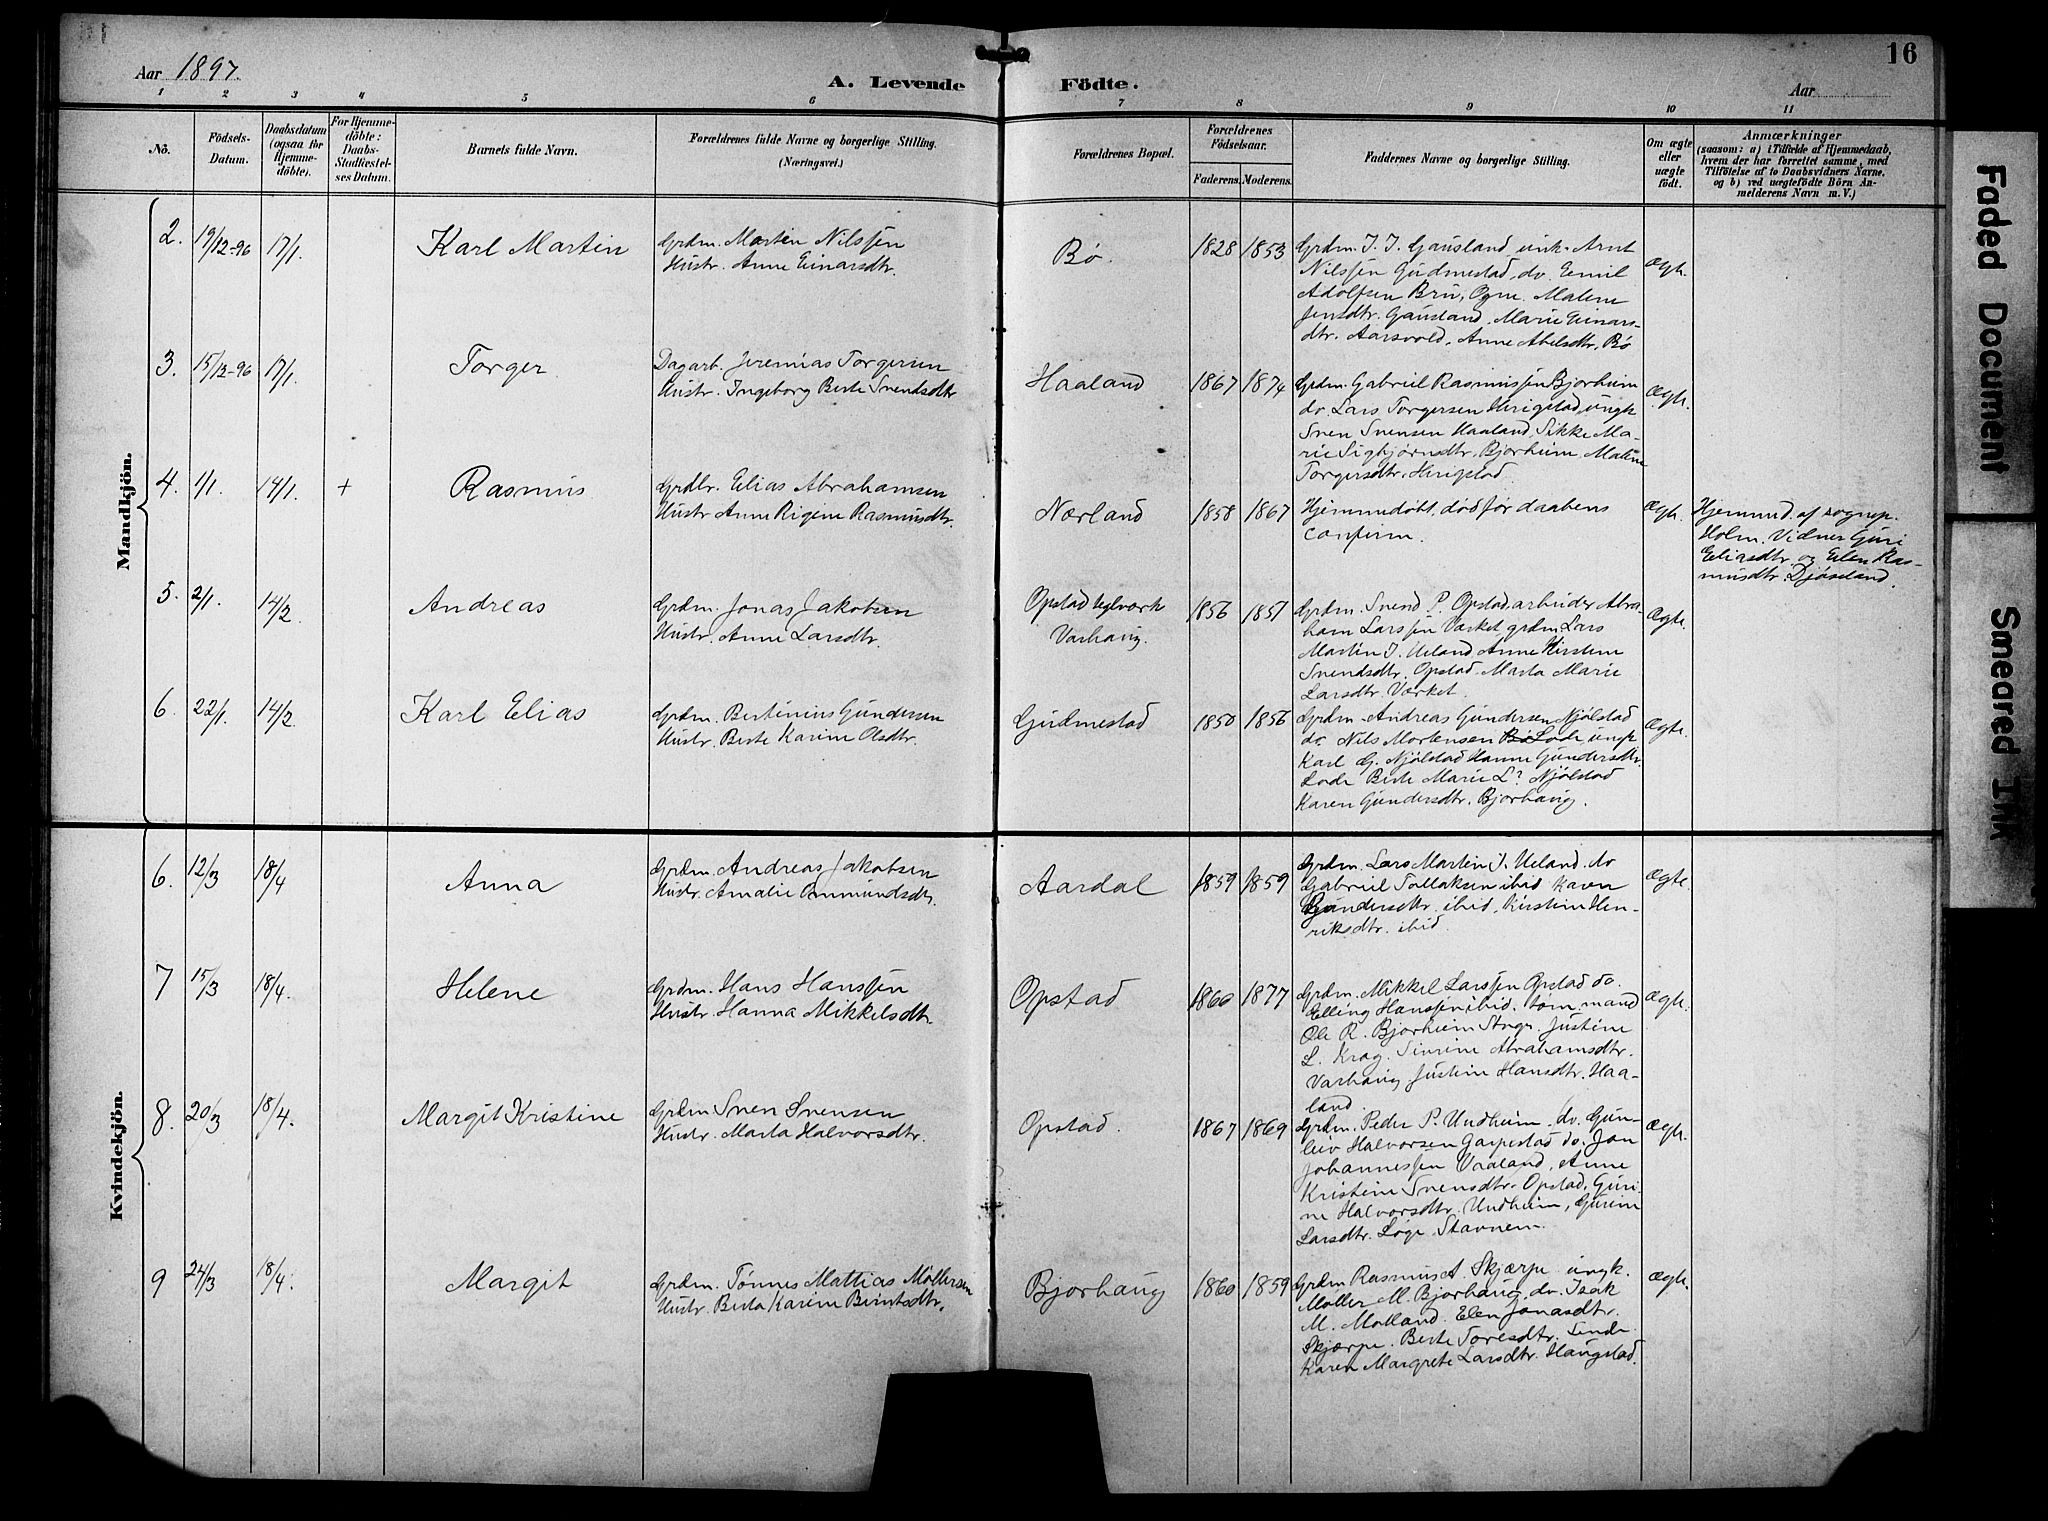 16
Aar 1897.
A. Levende Fødte.
Aar
1 2 3 4 5 6 7 8 9 10 11
No.
Födsels-
Datum.
Daabsdatum
(ogsaa for
Hjemme-
döbte).
For Hjemme-
döbte:
Daabs-
Stadfæstel-
ses Datum.
Barnets fulde Navn.
Forældrenes fulde Navne og borgerlige Stilling.
(Næringsvei.)
Forældrenes Bopæl.
Forældrenes
Födselsaar.
Faderens. Moderens.
Faddernes Navne og borgerlige Stilling.
Om ægte
eller
uægte
födt.
Anmærkninger
(saasom: a) i Tilfælde af Hjemmedaab,
hvem der har forrettet samme, med
Tilföielse af to Daabsvidners Navne,
og b) ved uægtefödte Börn An-
melderens Navn m. V.)
Mandkjön.
2. 19/12-96 17/1. Karl Martin
Grdm. Martin Nilssen
Hustr. Anne Einarsdtr.
Bø. 1828 1853
Grdm. J. J. Gausland, unk. Arnt
Nilssen Gudmestad, do Emil
Adolfsen Bru, Ogne. Malene
Jensdtr. Gausland, Marie Einars-
dtr. Aarsvold, Anne Abelsdtr. Bø
Ægte.
3. 15/12-96 17/1. Torger
Dagarb. Jeremias Torgersen
Hustr. Ingeborg Berte Svendsdtr
Haaland 1867 1874
Grdm. Gabriel Rasmussen Bjorheim
do. Lars Torgersen Herigstad, ungk
Sven Svensen Haaland, Sikke Ma-
rie Sigbjørnsdtr. Bjorheim, Malene
Torgersdtr. Herigstad
Ægte.
4. 1/1. 14/1. + Rasmus
Grdbr. Elias Abrahamsen
Hustr Anne Rigene Rasmusdtr.
Nærland 1858 1867
Hjemmedøbt, død før daabens
confirm.
Ægte.
Hjemmed. af sognep.
Holm. Vidner Guri
Eliasdtr. og Elen Ras-
musdtr. Djøseland.
5. 2/1. 14/2. Andreas
Grdm. Jonas Jakobsen
Hustr. Anne Larsdtr.
Opstad teglværk
Varhaug.
1856 1851
Grdm. Svend P. Opstad, arbeider Abra-
ham Larssen Værket grdm. Lars
Martin J. Ueland Anne Kirstene
Svendsdtr. Opstad Marta Marie
Larsdtr. Værket.
Ægte.
6. 22/1. 14/2 Karl Elias
Grdm. Bertinius Gundersen
Hustr. Berte Karine Olsdtr.
Gudmestad 1850 1856
Grdm. Andreas Gundersen Njølstad
do. Nils Mortensen Lode ungk
Karl G. Njølstad Hanne Gundersdtr.
Lode Berte Marie L? Njølstad
Karen Gundersdtr. Bjorhaug.
Ægte.
Kvindekjön.
6. 12/3 18/4 Anna
Grdm. Andreas Jakobsen
Hustr. Amalie Ommundsdtr.
Aardal 1859 1859
Grdm. Lars Martin J. Ueland. do
Gabriel Tollaksen ibid Karen
Gundersdtr. ibid, Kirstine Hen-
riksdtr. ibid.
Ægte
7 15/3 18/4. Helene
Grdm. Hans Hanssen
Hustr. Hanna Mikkelsdtr.
Opstad 1860 1877
Grdm. Mikkel Larssen Opstad do.
Elling Hanssen ibid. tømmand
Ole R. Bjorheim Stngr. Justine
L. Krag. Sivrine Abrahamsdtr.
Varhaug Justine Hansdtr. Haa-
land
Ægte.
8. 20/3 18/4. Margit Kristine
Grdm Sven Svensen
Hustr. Marta Halvorsdtr.
Opstad. 1867 1869
Grdm. Peder P. Undheim. do. Gun-
leiv Halvorsen Garpestad do. Jon
Johannessen Vaaland, Anne
Kristine Svensdtr. Opstad, Guri-
ne Halvorsdtr. Undheim, Gurine
Larsdtr. Løge Stavnem.
Ægte.
9 24/3 18/4. Margit
Grdm. Tønnes Mattias Møllersen
Hustr. Berta Karine Berntsdtr.
Bjorhaug 1860 1859
Grdm Rasmus A. Skjærpe ungk.
Møller M. Bjorhaug, do. Isak
M. Motland. Elen Jonasdtr.
Skjærpe. Berte Toresdtr. Linde
Karen Margrete Larsdtr. Haugstad.
Ægte.
Faded Document
Smeared Ink